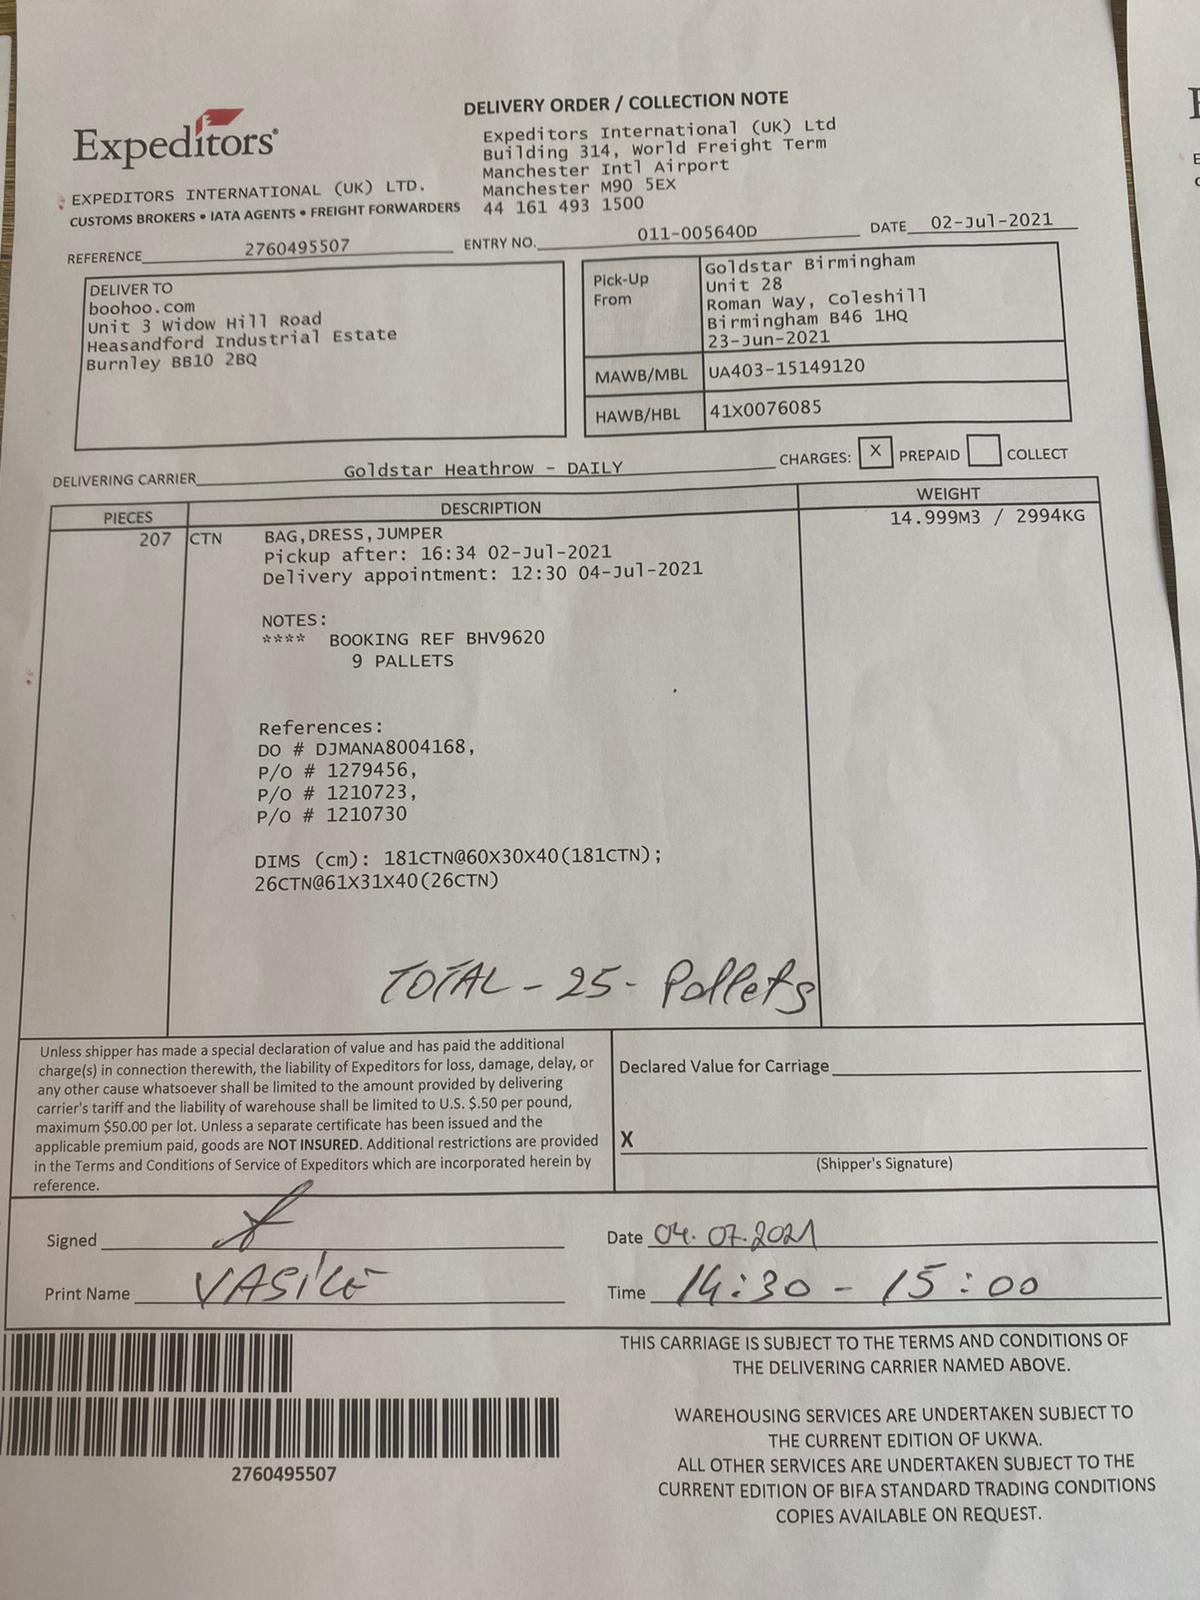 DELIVERY ORDER / COLLECTION NOTE
Expeditors
EXPEDITORS INTERNATIONAL (UK) LTD.
CUSTOMS BROKERS • IATA AGENTS • FREIGHT FORWARDERS
Expeditors International (UK) Ltd
Building 314, World Freight Term
Manchester Intl Airport
Manchester M90 5EX
44 161 493 1500
REFERENCE 2760495507 ENTRY NO. 011-005640D DATE 02-Jul-2021
DELIVER TO
boohoo.com
Unit 3 Widow Hill Road
Heasandford Industrial Estate
Burnley BB10 2BQ
Pick-Up From
Goldstar Birmingham
Unit 28
Roman Way, Coleshill
Birmingham B46 1HQ
23-Jun-2021
MAWB/MBL UA403-15149120
HAWB/HBL 41X0076085
DELIVERING CARRIER Goldstar Heathrow - DAILY CHARGES: X PREPAID COLLECT
PIECES DESCRIPTION WEIGHT
207 CTN BAG,DRESS,JUMPER 14.999M3 / 2994KG
Pickup after: 16:34 02-Jul-2021
Delivery appointment: 12:30 04-Jul-2021
NOTES:
**** BOOKING REF BHV9620
9 PALLETS
References:
DO # DJMANA8004168,
P/O # 1279456,
P/O # 1210723,
P/O # 1210730
DIMS (cm): 181CTN@60X30X40(181CTN);
26CTN@61X31X40(26CTN)
TOTAL - 25 - Pallets
Unless shipper has made a special declaration of value and has paid the additional
charge(s) in connection therewith, the liability of Expeditors for loss, damage, delay, or
any other cause whatsoever shall be limited to the amount provided by delivering
carrier's tariff and the liability of warehouse shall be limited to U.S. $.50 per pound,
maximum $50.00 per lot. Unless a separate certificate has been issued and the
applicable premium paid, goods are NOT INSURED. Additional restrictions are provided
in the Terms and Conditions of Service of Expeditors which are incorporated herein by
reference.
Declared Value for Carriage
X
(Shipper's Signature)
Signed
Date 04.07.2021
Print Name VASILE
Time 14:30 - 15:00
2760495507
THIS CARRIAGE IS SUBJECT TO THE TERMS AND CONDITIONS OF
THE DELIVERING CARRIER NAMED ABOVE.
WAREHOUSING SERVICES ARE UNDERTAKEN SUBJECT TO
THE CURRENT EDITION OF UKWA.
ALL OTHER SERVICES ARE UNDERTAKEN SUBJECT TO THE
CURRENT EDITION OF BIFA STANDARD TRADING CONDITIONS
COPIES AVAILABLE ON REQUEST.